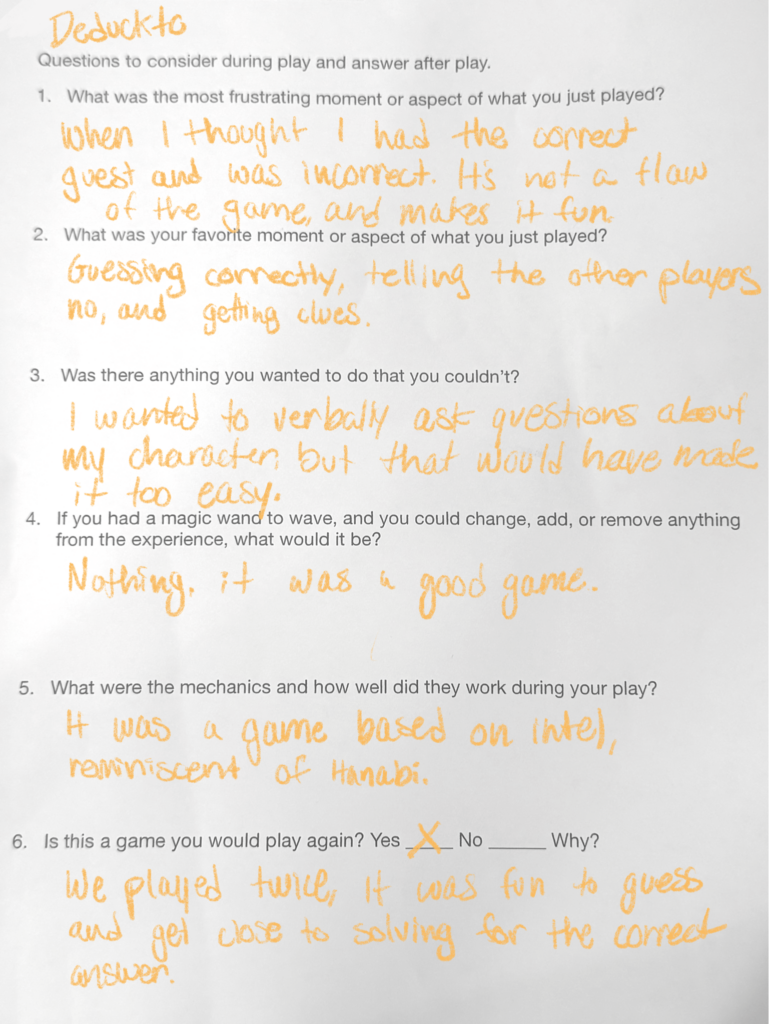 Deduckto
Questions to consider during play and answer after play.
1. What was the most frustrating moment or aspect of what you just played?
When I thought I had the correct
guest and was incorrect. It's not a flaw
of the game, and makes it fun.
2. What was your favorite moment or aspect of what you just played?
Guessing correctly, telling the other players
no, and getting clues.
3. Was there anything you wanted to do that you couldn't?
I wanted to verbally ask questions about
my character, but that would have made
it too easy.
4. If you had a magic wand to wave, and you could change, add, or remove anything
from the experience, what would it be?
Nothing, it was a good game.
5. What were the mechanics and how well did they work during your play?
It was a game based on intel,
reminiscent of Hanabi.
6. Is this a game you would play again? Yes __X__ No _____ Why?
We played twice, it was fun to guess
and get close to solving for the correct
answer.